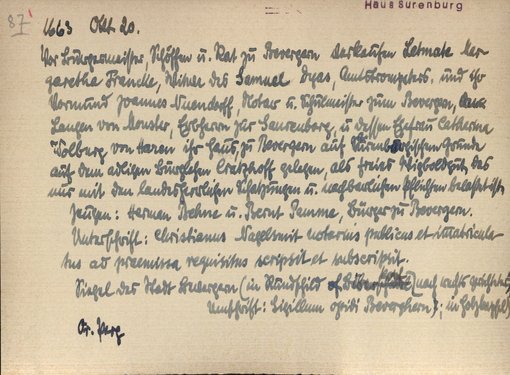 87
Haus Surenburg
1663 Okt 20.
Vor Bürgermeister, Schöffen u. Rat zu Bevergern verkaufen Mar-
garetha Francke, Witwe des Samuel Dyas, Amtstrompeters, und ihr
Vormund Joannes Nuendorff, Notar u. Schulmeister zum Bevergern,
Langen von Monster, Erbherrn zur Saurenborg, u. dessen Ehefrau Catharina
Wolburg von Haren ihr Haus, zu Bevergern auf Grunde
auf dem adligen Burglehen gelegen, als freies das
nur mit den landesherrlichen Schatzungen u. nachbarlichen Pflichten belastet ist.
Zeugen: Herman Behne u. Bernt Temme, Bürger zu Bevergern.
Unterschrift: Christianus Nagelsmit notarius publicus et immatricula-
tus ad praemissa requisitus scripsit et subscripsit.
Siegel der Stadt Bevergern (im Rundschild nach rechts
Umschrift: Sigillum opidi Beverghern); in Holzkapsel
Or. Perg